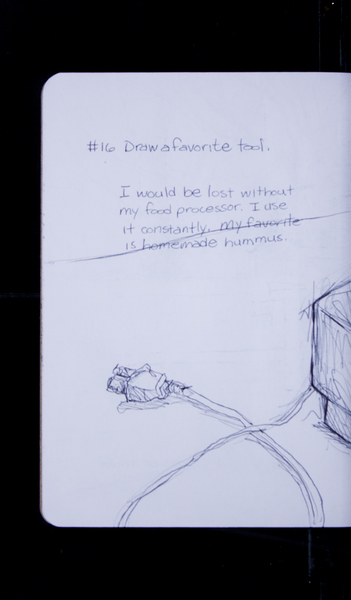 #16 Draw a favorite tool.
I would be lost without
my food processor. I use
it constantly. My favorite
is homemade hummus.